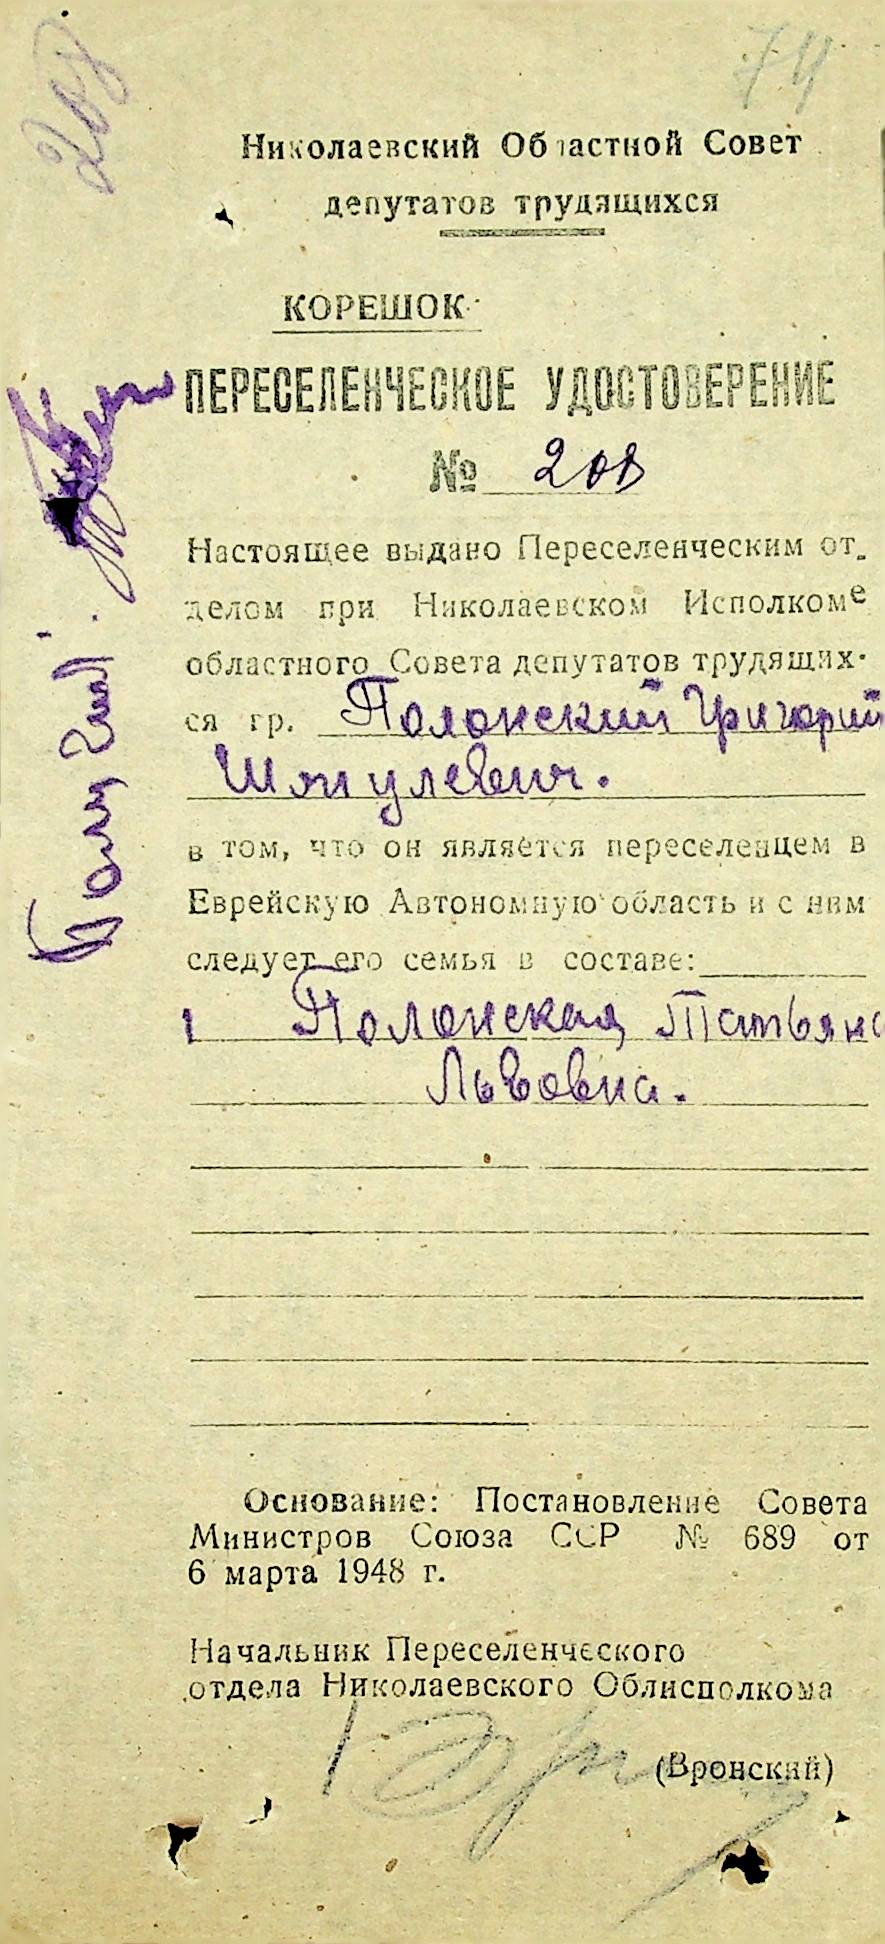 208
74
Николаевский Областной Совет
депутатов трудящихся
КОРЕШОК
ПЕРЕСЕЛЕНЧЕСКОЕ УДОСТОВЕРЕНИЕ
№ 208
Настоящее выдано Переселенческим от-
делом при Николаевском Исполкоме
областного Совета депутатов трудящих-
ся гр. Полонский Григорий
Шмулевич.
в том, что он является переселенцем в
Еврейскую Автономную область и с ним
следует его семья в составе:
1 Полонская Татьяна
Львовна.
Основание: Постановление Совета
Министров Союза ССР № 689 от
6 марта 1948 г.
Начальник Переселенческого
отдела Николаевского Облисполкома
(Вронский)
Получил.